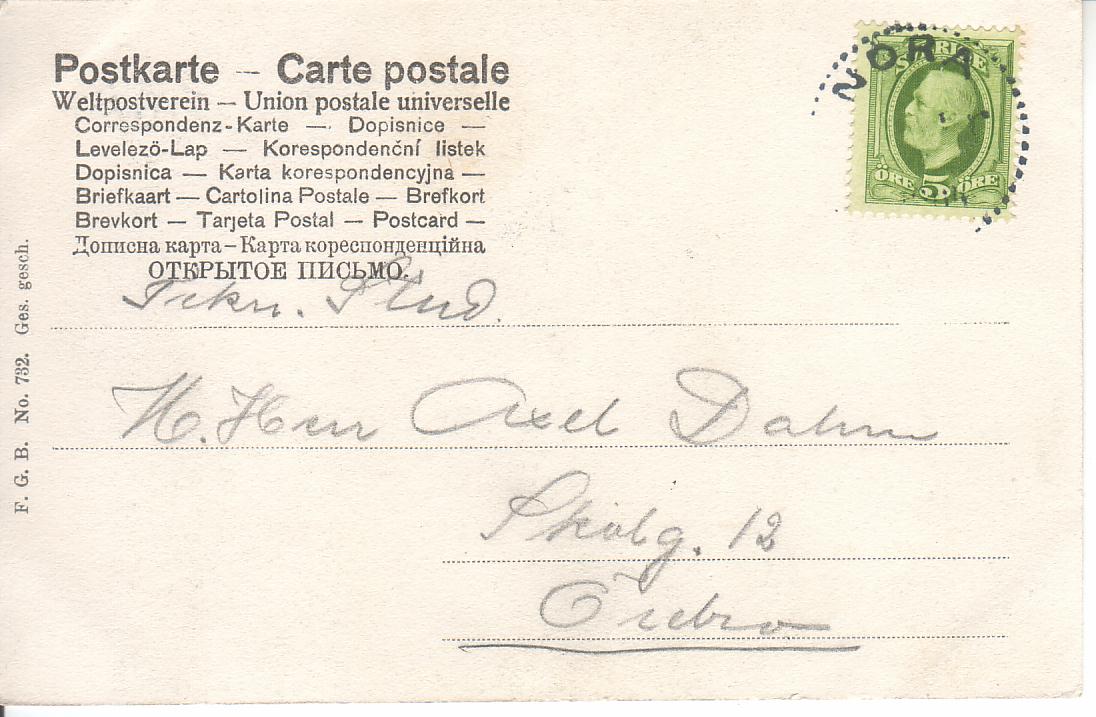 Postkarte — Carte postale
Weltpostverein — Union postale universelle
Correspondenz-Karte — Dopisnice —
Levelező-Lap — Korespondenční listek
Dopisnica — Karta korespondencyjna —
Briefkaart — Cartolina Postale — Brefkort
Brevkort — Tarjeta Postal — Postcard —
Дописна карта — Карта кореспонденційна
ОТКРЫТОЕ ПИСЬМО.
NORA
SVERIGE
ÖRE 5 ÖRE
Tekn. Stud.
H. Herr Axel Dahm
Skolg. 12
Örebro
F. G. B. No. 732. Ges. gesch.